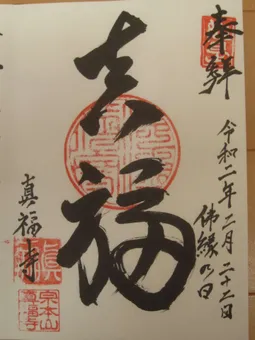 奉拝
令和二年二月二十二日
佛縁の日
真福
真福寺
宗本山